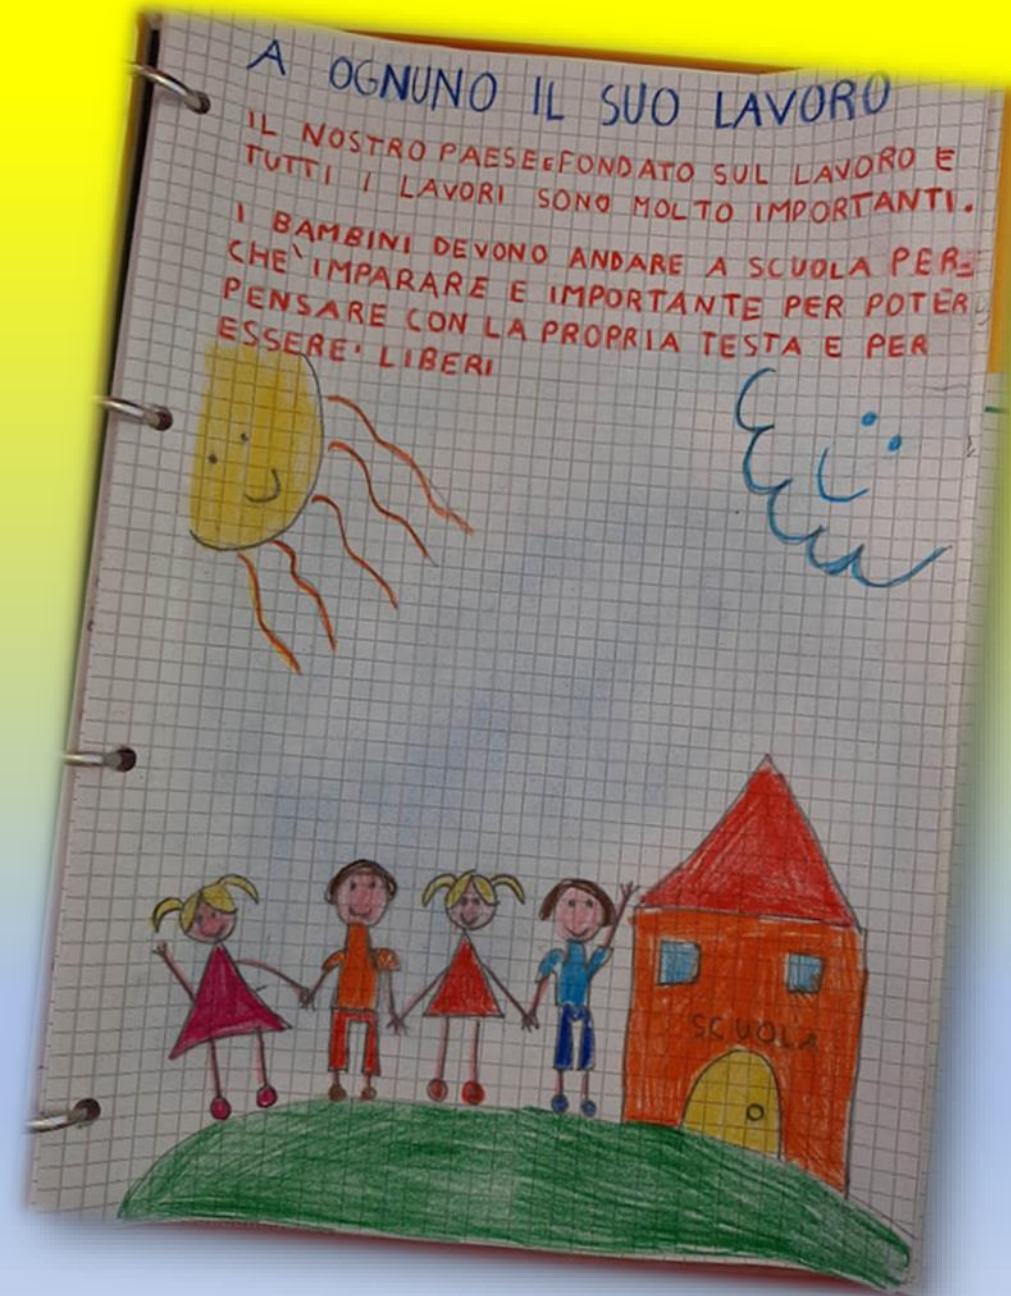 A OGNUNO IL SUO LAVORO
IL NOSTRO PAESE E FONDATO SUL LAVORO E
TUTTI I LAVORI SONO MOLTO IMPORTANTI.
I BAMBINI DEVONO ANDARE A SCUOLA PER=
CHE' IMPARARE E IMPORTANTE PER POTER
PENSARE CON LA PROPRIA TESTA E PER
ESSERE' LIBERI
SCUOLA